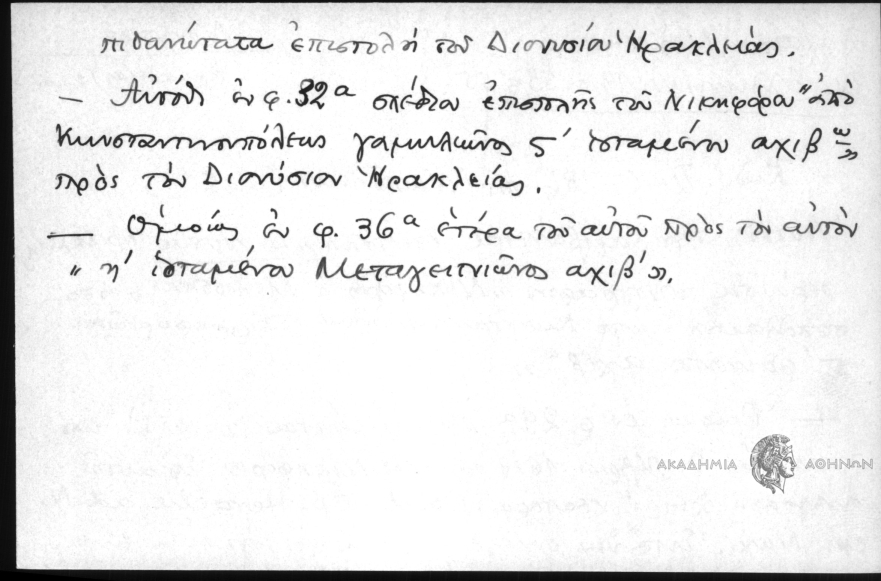 πιθανώτατα ἐπιστολὴ τοῦ Διονυσίου Ἡρακλείας.
— Αὐτόθι ἐν φ. 32α σχέδιον ἐπιστολῆς τοῦ Νικηφόρου "ἀπὸ
Κωνσταντινουπόλεως γαμηλιῶνος ϛ' ἱσταμένου αχιβω"
πρὸς τὸν Διονύσιον Ἡρακλείας.
— Ὁμοίως ἐν φ. 36α ἑτέρα τοῦ αὐτοῦ πρὸς τὸν αὐτὸν
"η' ἱσταμένου Μεταγειτνιῶνος αχιβ'".
ΑΚΑΔΗΜΙΑ ΑΘΗΝΩΝ